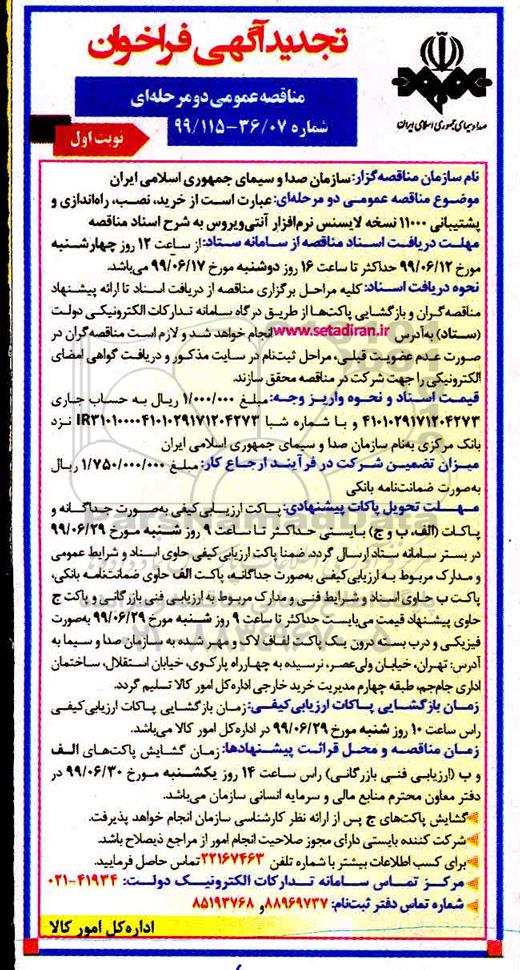 تجدید آگهی فراخوان
مناقصه عمومی دو مرحله‌ای
شماره ۳۶/۰۷-۹۹/۱۱۵
نوبت اول
صدا و سیمای جمهوری اسلامی ایران
نام سازمان مناقصه‌گزار: سازمان صدا و سیمای جمهوری اسلامی ایران
موضوع مناقصه عمومی دو مرحله‌ای: عبارت است از خرید، نصب، راه‌اندازی و
پشتیبانی ۱۱۰۰۰ نسخه لایسنس نرم‌افزار آنتی‌ویروس به شرح اسناد مناقصه
مهلت دریافت اسناد مناقصه از سامانه ستاد: از ساعت ۱۲ روز چهارشنبه
مورخ ۹۹/۰۶/۱۲ حداکثر تا ساعت ۱۶ روز دوشنبه مورخ ۹۹/۰۶/۱۷ می‌باشد.
نحوه دریافت اسناد: کلیه مراحل برگزاری مناقصه از دریافت اسناد تا ارائه پیشنهاد
مناقصه‌گران و بازگشایی پاکت‌ها از طریق درگاه سامانه تدارکات الکترونیکی دولت
(ستاد) به‌آدرس www.setadiran.ir انجام خواهد شد و لازم است مناقصه‌گران در
صورت عدم عضویت قبلی، مراحل ثبت‌نام در سایت مذکور و دریافت گواهی امضای
الکترونیکی را جهت شرکت در مناقصه محقق سازند.
قیمت اسناد و نحوه واریز وجه: مبلغ ۱/۰۰۰/۰۰۰ ریال به حساب جاری
۴۱۰۱۰۲۹۱۷۱۲۰۴۲۷۳ و با شماره شبا IR۳۱۰۱۰۰۰۰۴۱۰۱۰۲۹۱۷۱۲۰۴۲۷۳ نزد
بانک مرکزی به‌نام سازمان صدا و سیمای جمهوری اسلامی ایران
میزان تضمین شرکت در فرآیند ارجاع کار: مبلغ ۱/۷۵۰/۰۰۰/۰۰۰ ریال
به‌صورت ضمانت‌نامه بانکی
مهلت تحویل پاکات پیشنهادی: پاکت ارزیابی کیفی به‌صورت جداگانه و
پاکات (الف، ب و ج) بایستی حداکثر تا ساعت ۹ روز شنبه مورخ ۹۹/۰۶/۲۹
در بستر سامانه ستاد ارسال گردد. ضمنا پاکت ارزیابی کیفی حاوی اسناد و شرایط عمومی
و مدارک مربوط به ارزیابی کیفی به‌صورت جداگانه، پاکت الف حاوی ضمانت‌نامه بانکی،
پاکت ب حاوی اسناد و شرایط فنی و مدارک مربوط به ارزیابی فنی بازرگانی و پاکت ج
حاوی پیشنهاد قیمت می‌بایست حداکثر تا ساعت ۹ روز شنبه مورخ ۹۹/۰۶/۲۹ به‌صورت
فیزیکی و درب بسته درون یک پاکت لفاف لاک و مهر شده به سازمان صدا و سیما به
آدرس: تهران، خیابان ولی‌عصر، نرسیده به چهارراه پارک‌وی، خیابان استقلال، ساختمان
اداری جام‌جم، طبقه چهارم مدیریت خرید خارجی اداره‌کل امور کالا تسلیم گردد.
زمان بازگشایی پاکات ارزیابی کیفی: زمان بازگشایی پاکات ارزیابی کیفی
راس ساعت ۱۰ روز شنبه مورخ ۹۹/۰۶/۲۹ در اداره‌کل امور کالا می‌باشد.
زمان مناقصه و محل قرائت پیشنهادها: زمان گشایش پاکت‌های الف
و ب (ارزیابی فنی بازرگانی) راس ساعت ۱۴ روز یکشنبه مورخ ۹۹/۰۶/۳۰ در
دفتر معاون محترم منابع مالی و سرمایه انسانی سازمان می‌باشد.
گشایش پاکت‌های ج پس از ارائه نظر کارشناسی سازمان انجام خواهد پذیرفت.
شرکت کننده بایستی دارای مجوز صلاحیت انجام امور از مراجع ذیصلاح باشد.
برای کسب اطلاعات بیشتر با شماره تلفن ۲۲۱۶۷۴۶۳ تماس حاصل فرمایید.
مرکز تماس سامانه تدارکات الکترونیک دولت: ۴۱۹۳۴-۰۲۱
شماره تماس دفتر ثبت‌نام: ۸۸۹۶۹۷۳۷ و ۸۵۱۹۳۷۶۸
اداره‌کل امور کالا